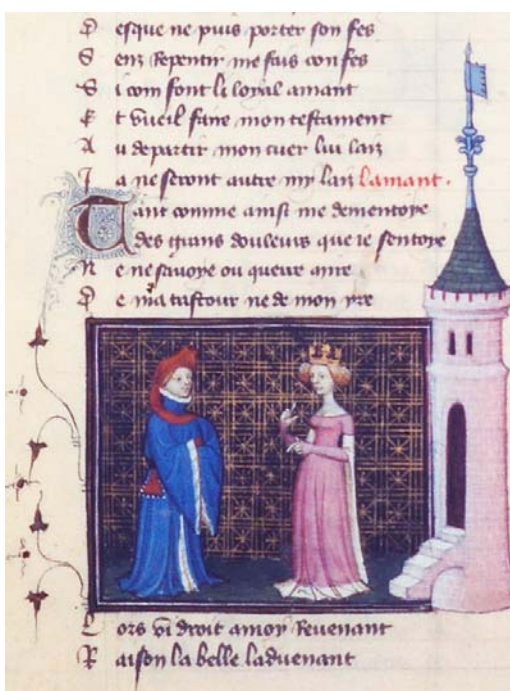 D esque ne puis porter son fes
S enz Repentir me fais confes
S i com font li loyal amant
E t vueil faire mon testament
A u departir mon cuer lui laiz
J a ne seront autre my laiz Lamant.
Tant comme ainsi me dementoye
des grans douleurs que ie sentoye
N e ne savoye ou querre
D e ma ne de mon yre
L ors vi droit a moy Revenant
R aison la belle ladvenant